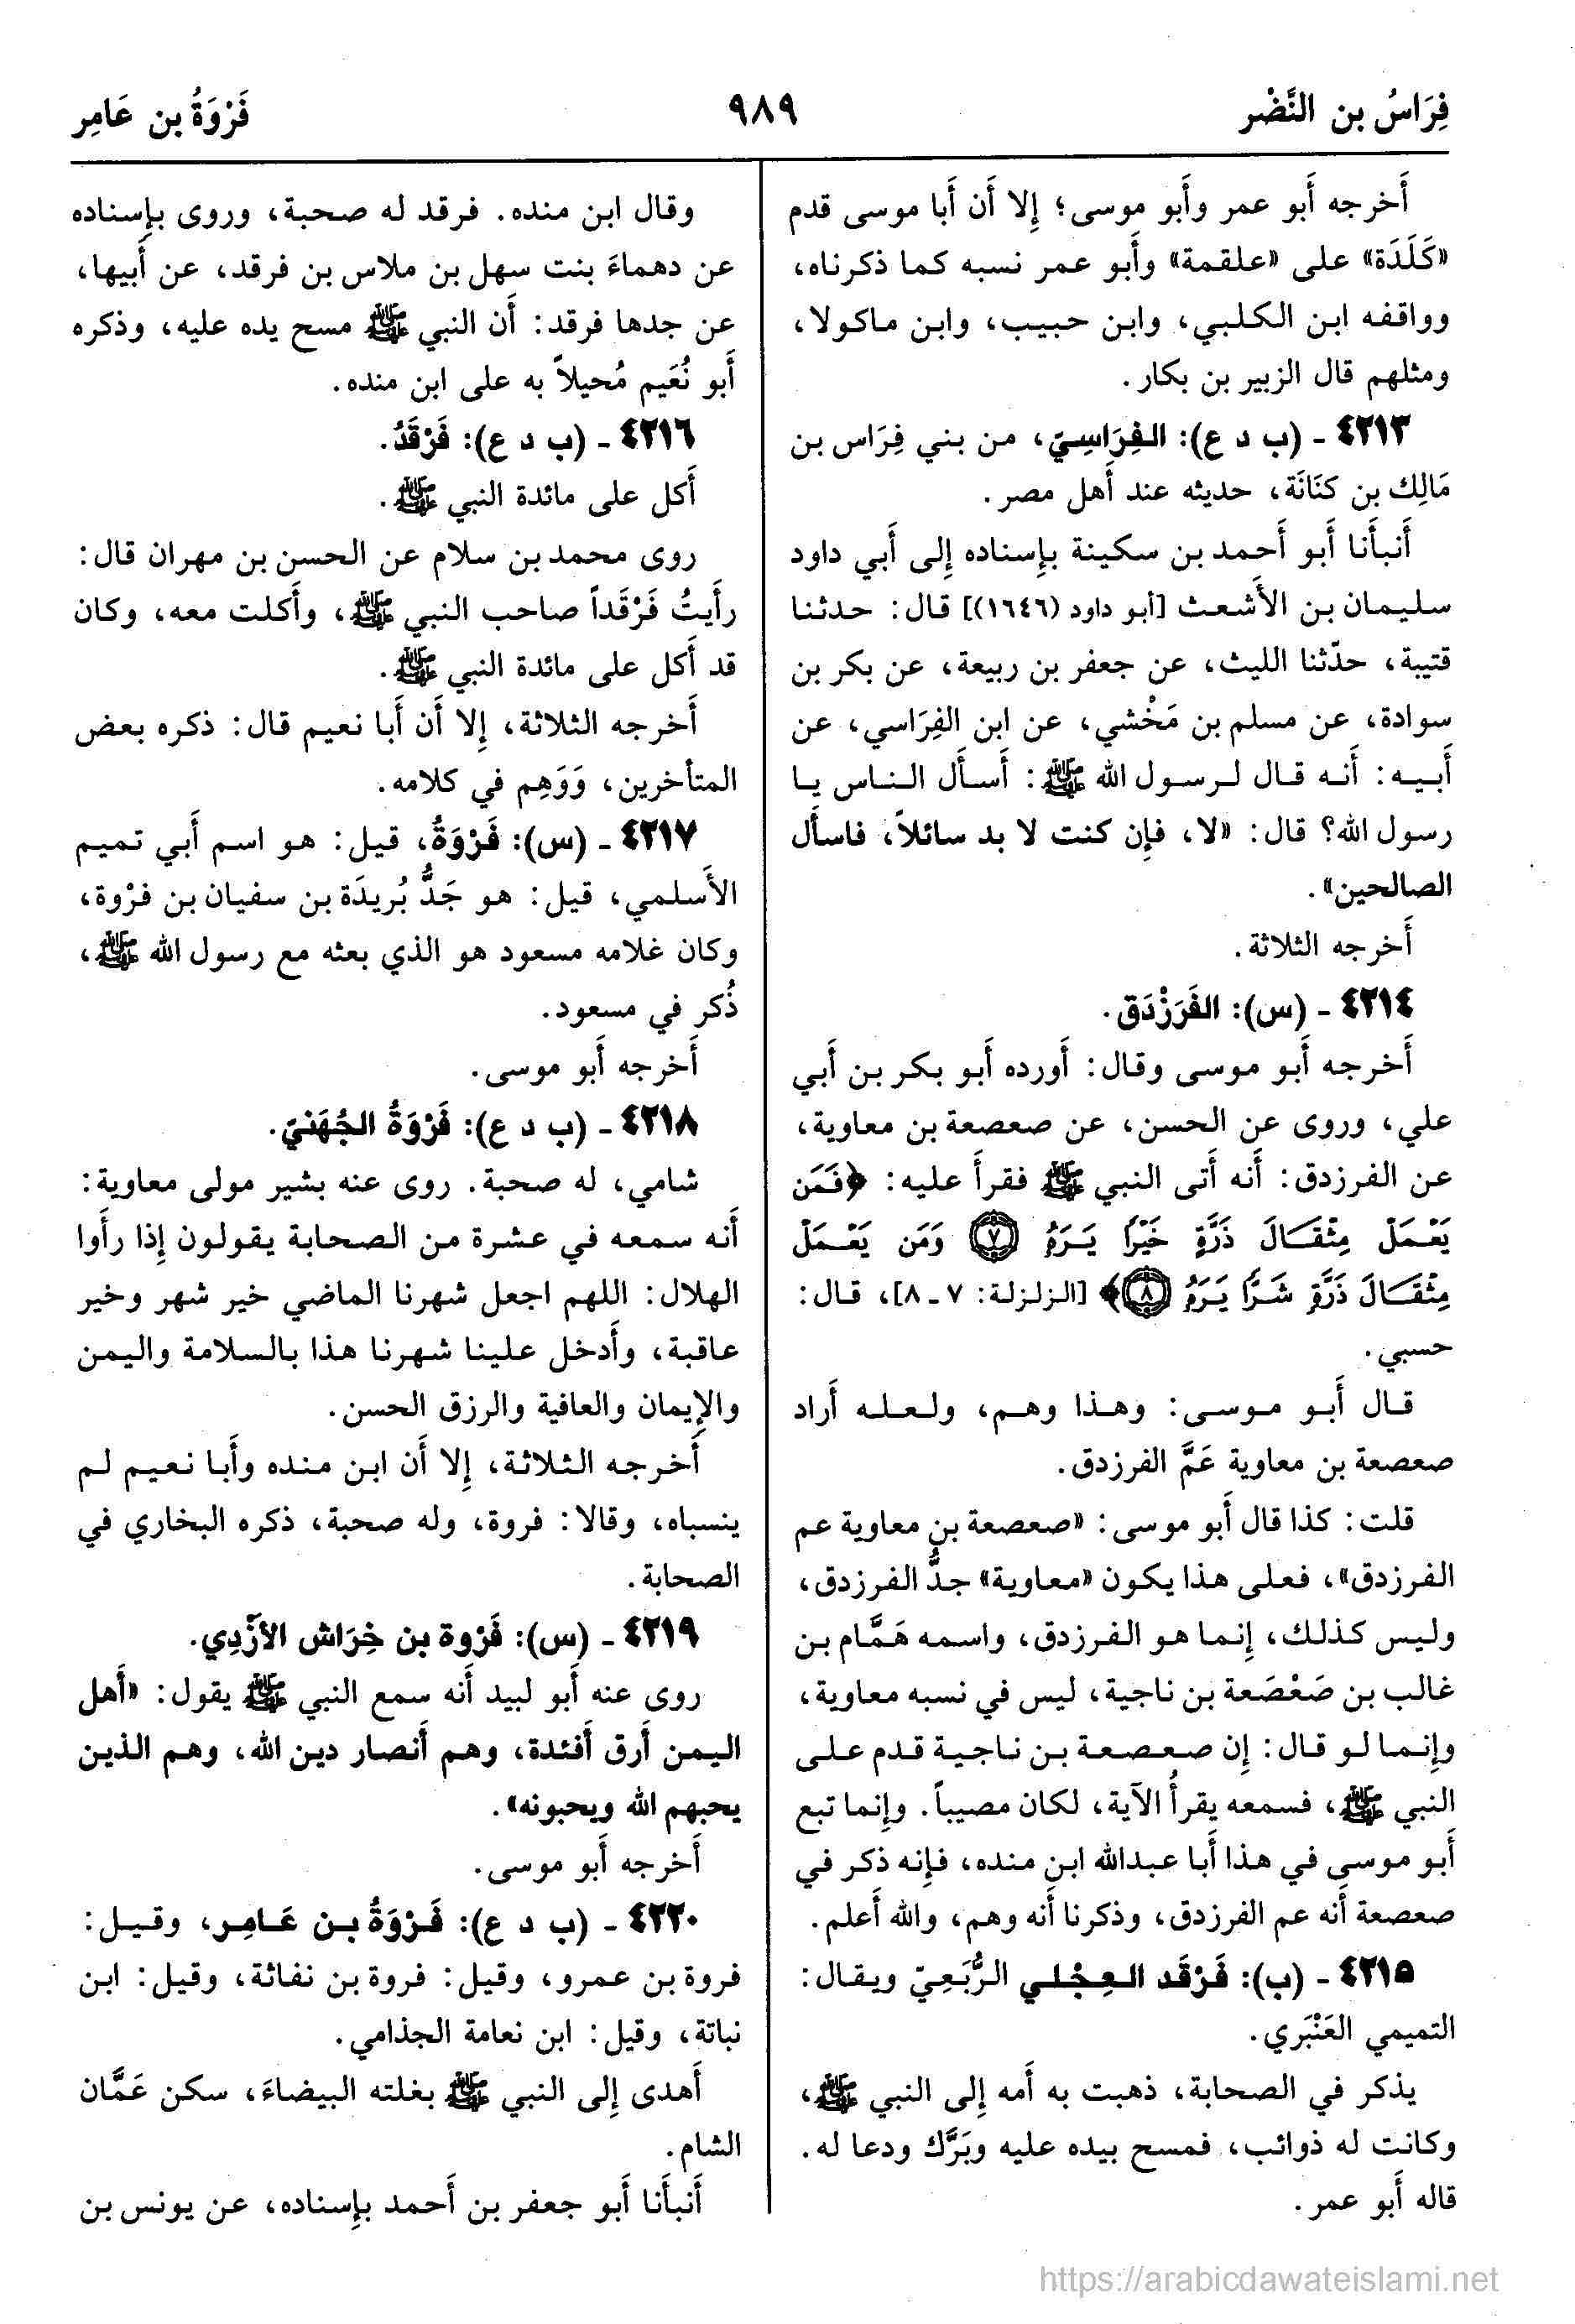 فِرَاسُ بن النَّضْر
٩٨٩
فَرْوَةُ بن عَامِر
أَخرجه أَبو عمر وأَبو موسى؛ إِلا أَن أَبا موسى قدم
«كَلَدَة» على «علقمة» وأَبو عمر نسبه كما ذكرناه،
وواقفه ابن الكلبي، وابن حبيب، وابن ماكولا،
ومثلهم قال الزبير بن بكار.
٤٢١٣ ـ (ب د ع): الفِرَاسِيّ، من بني فِرَاس بن
مَالِك بن كنَانَة، حديثه عند أَهل مصر.
أَنبأَنا أَبو أَحمد بن سكينة بإِسناده إِلى أَبي داود
سليمان بن الأَشعث [أبو داود (١٦٤٦)] قال: حدثنا
قتيبة، حدّثنا الليث، عن جعفر بن ربيعة، عن بكر بن
سوادة، عن مسلم بن مَخْشي، عن ابن الفِرَاسي، عن
أَبيه: أَنه قال لرسول الله ﷺ: أَسأَل الناس يا
رسول الله؟ قال: «لا، فإِن كنت لا بد سائلاً، فاسأَل
الصالحين».
أَخرجه الثلاثة.
٤٢١٤ ـ (س): الفَرَزْدَق.
أَخرجه أَبو موسى وقال: أَورده أَبو بكر بن أَبي
علي، وروى عن الحسن، عن صعصعة بن معاوية،
عن الفرزدق: أَنه أَتى النبي ﷺ فقرأَ عليه: ﴿فَمَن
يَعْمَلْ مِثْقَالَ ذَرَّةٍ خَيْرًا يَرَهُ ٧ وَمَن يَعْمَلْ
مِثْقَالَ ذَرَّةٍ شَرًّا يَرَهُ ٨﴾ [الزلزلة: ٧ ـ ٨]، قال:
حسبي.
قال أَبو موسى: وهذا وهم، ولعله أَراد
صعصعة بن معاوية عَمَّ الفرزدق.
قلت: كذا قال أَبو موسى: «صعصعة بن معاوية عم
الفرزدق»، فعلى هذا يكون «معاوية» جدُّ الفرزدق،
وليس كذلك، إِنما هو الفرزدق، واسمه هَمَّام بن
غالب بن صَعْصَعة بن ناجية، ليس في نسبه معاوية،
وإِنما لو قال: إِن صعصعة بن ناجية قدم على
النبي ﷺ، فسمعه يقرأُ الآية، لكان مصيباً. وإِنما تبع
أَبو موسى في هذا أَبا عبدالله ابن منده، فإِنه ذكر في
صعصعة أَنه عم الفرزدق، وذكرنا أَنه وهم، والله أَعلم.
٤٢١٥ ـ (ب): فَرْقَد العِجْلي الرُّبَعِيّ ويقال:
التميمي العَنْبَري.
يذكر في الصحابة، ذهبت به أَمه إِلى النبي ﷺ،
وكانت له ذوائب، فمسح بيده عليه وبَرَّك ودعا له.
قاله أَبو عمر.
وقال ابن منده. فرقد له صحبة، وروى بإِسناده
عن دهماءَ بنت سهل بن ملاس بن فرقد، عن أَبيها،
عن جدها فرقد: أَن النبي ﷺ مسح يده عليه، وذكره
أَبو نُعَيم مُحيلاً به على ابن منده.
٤٢١٦ ـ (ب د ع): فَرْقَدُ.
أَكل على مائدة النبي ﷺ.
روى محمد بن سلام عن الحسن بن مهران قال:
رأَيتُ فَرْقَداً صاحب النبي ﷺ، وأَكلت معه، وكان
قد أَكل على مائدة النبي ﷺ.
أَخرجه الثلاثة، إِلا أَن أَبا نعيم قال: ذكره بعض
المتأخرين، وَوَهِم في كلامه.
٤٢١٧ ـ (س): فَرْوَةُ، قيل: هو اسم أَبي تميم
الأَسلمي، قيل: هو جَدُّ بُريدَة بن سفيان بن فرْوة،
وكان غلامه مسعود هو الذي بعثه مع رسول الله ﷺ،
ذُكر في مسعود.
أَخرجه أَبو موسى.
٤٢١٨ ـ (ب د ع): فَرْوَةُ الجُهَنيّ.
شامي، له صحبة. روى عنه بشير مولى معاوية:
أَنه سمعه في عشرة من الصحابة يقولون إِذا رأَوا
الهلال: اللهم اجعل شهرنا الماضي خير شهر وخير
عاقبة، وأَدخل علينا شهرنا هذا بالسلامة واليمن
والإِيمان والعافية والرزق الحسن.
أَخرجه الثلاثة، إِلا أَن ابن منده وأَبا نعيم لم
ينسباه، وقالا: فروة، وله صحبة، ذكره البخاري في
الصحابة.
٤٢١٩ ـ (س): فَرْوة بن خِرَاش الأزْدِي.
روى عنه أَبو لبيد أَنه سمع النبي ﷺ يقول: «أَهل
اليمن أَرق أَفئدة، وهم أَنصار دين الله، وهم الذين
يحبهم الله ويحبونه».
أَخرجه أَبو موسى.
٤٢٢٠ ـ (ب د ع): فَرْوَةُ بن عَامِر، وقيل:
فروة بن عمرو، وقيل: فروة بن نفاثة، وقيل: ابن
نباتة، وقيل: ابن نعامة الجذامي.
أَهدى إِلى النبي ﷺ بغلته البيضاءَ، سكن عَمَّان
الشام.
أَنبأَنا أَبو جعفر بن أَحمد بإِسناده، عن يونس بن
https://arabicdawateislami.net